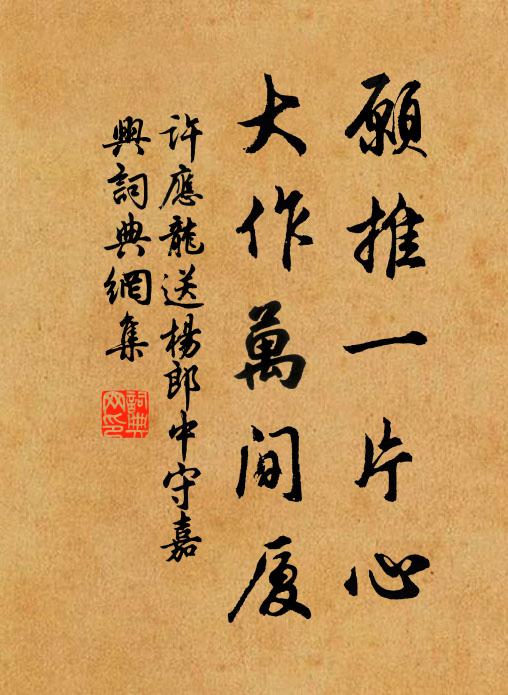 願推一片心
大作萬間厦
許應龍送楊郎中守嘉
興詞典網集
詞典
网印